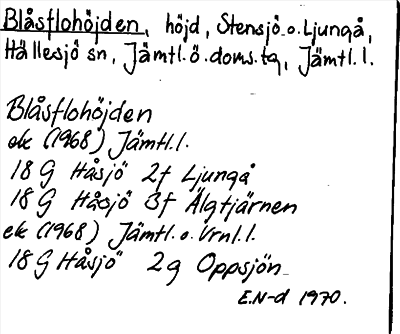 Blåsflohöjden, höjd, Stensjö o. Ljungå,
Hällesjö sn, Jämtl. ö. doms. tg, Jämtl. l.
Blåsflohöjden
ek (1968) Jämtl. l.
18 G Håsjö 2f Ljungå
18 G Håsjö 3f Älgtjärnen
ek (1968) Jämtl. o. Vrnl. l.
18 G Håsjö 2g Oppsjön
E.N-d 1970.